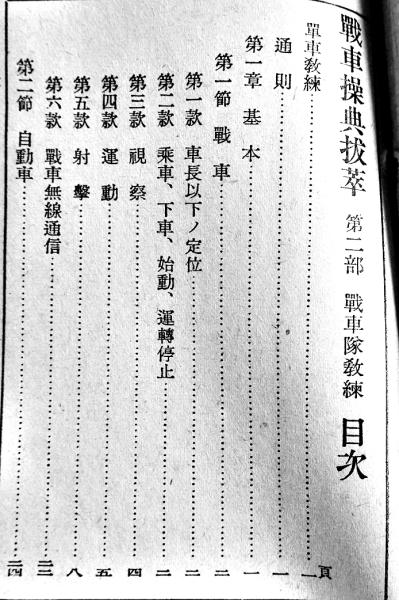 戰車操典拔萃 第二部 戰車隊敎練 目次
單車敎練……一頁
通則……一
第一章 基本……一
第一節 戰車……二
第一款 車長以下ノ定位……二
第二款 乘車、下車、始動、運轉停止……二
第三款 視察……四
第四款 運動……五
第五款 射擊……八
第六款 戰車無線通信……
第二節 自動車……